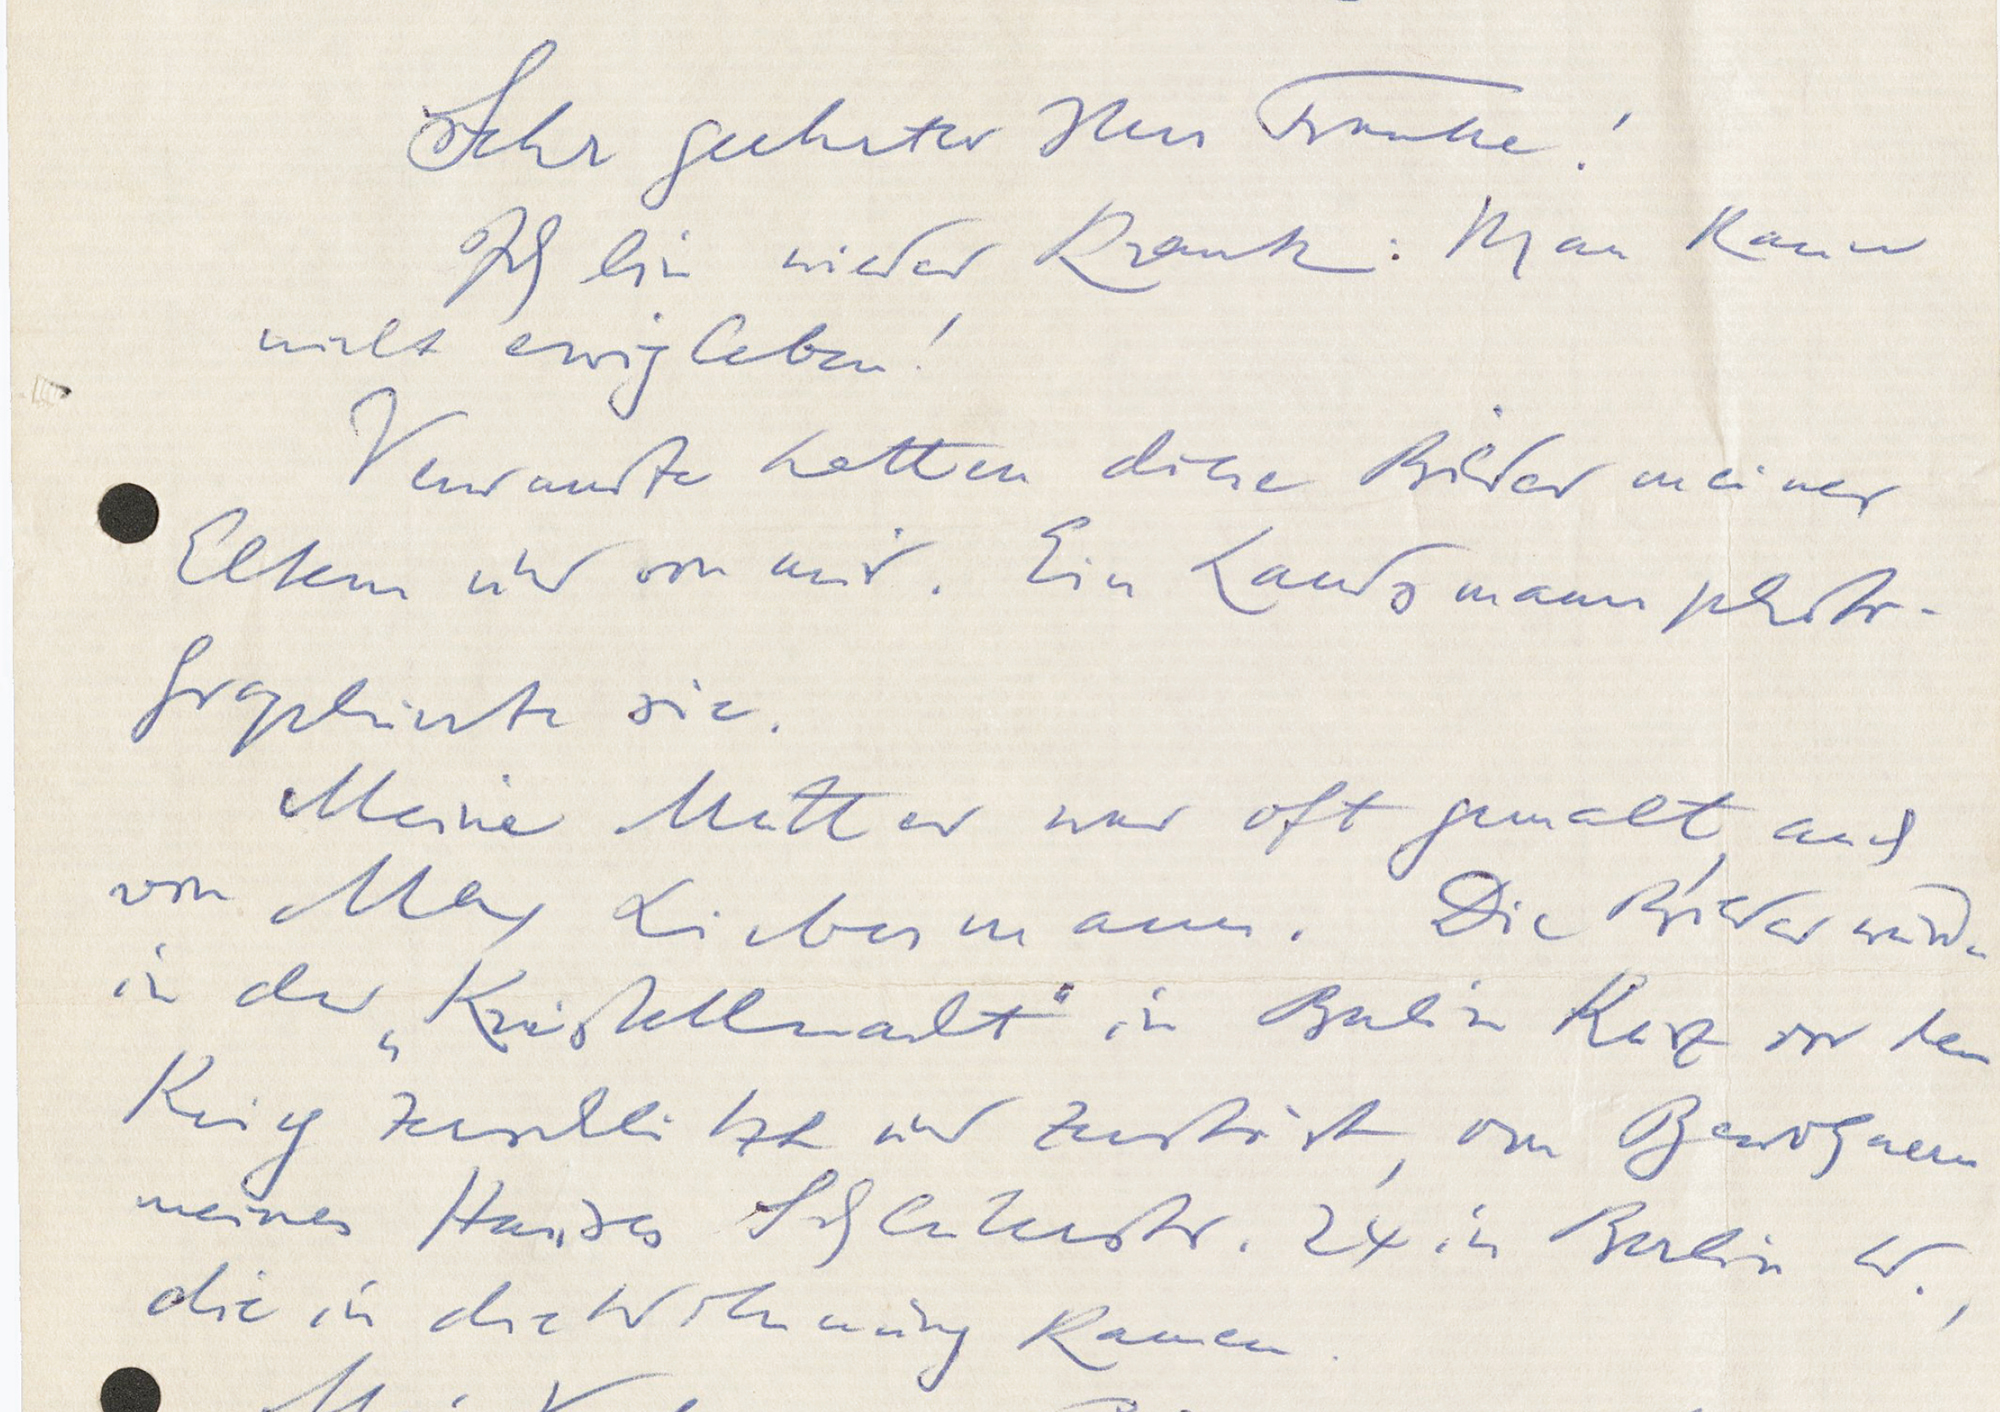 Sehr geehrter Herr Franke!
Ich bin wieder krank: Man kann
nicht ewig leben!
Verwandte hatten diese Bilder meiner
Eltern und von mir. Ein Landsmann photo-
graphierte sie.
Meine Mutter war oft gemalt, auch
von Max Liebermann. Die Bilder wurden
in der „Kristallnacht" in Berlin kurz vor dem
Krieg zerschlitzt und zerstört, von Bewohnern
meines Hauses Schlüterstr. 24 in Berlin W.,
die in die Wohnung kamen.